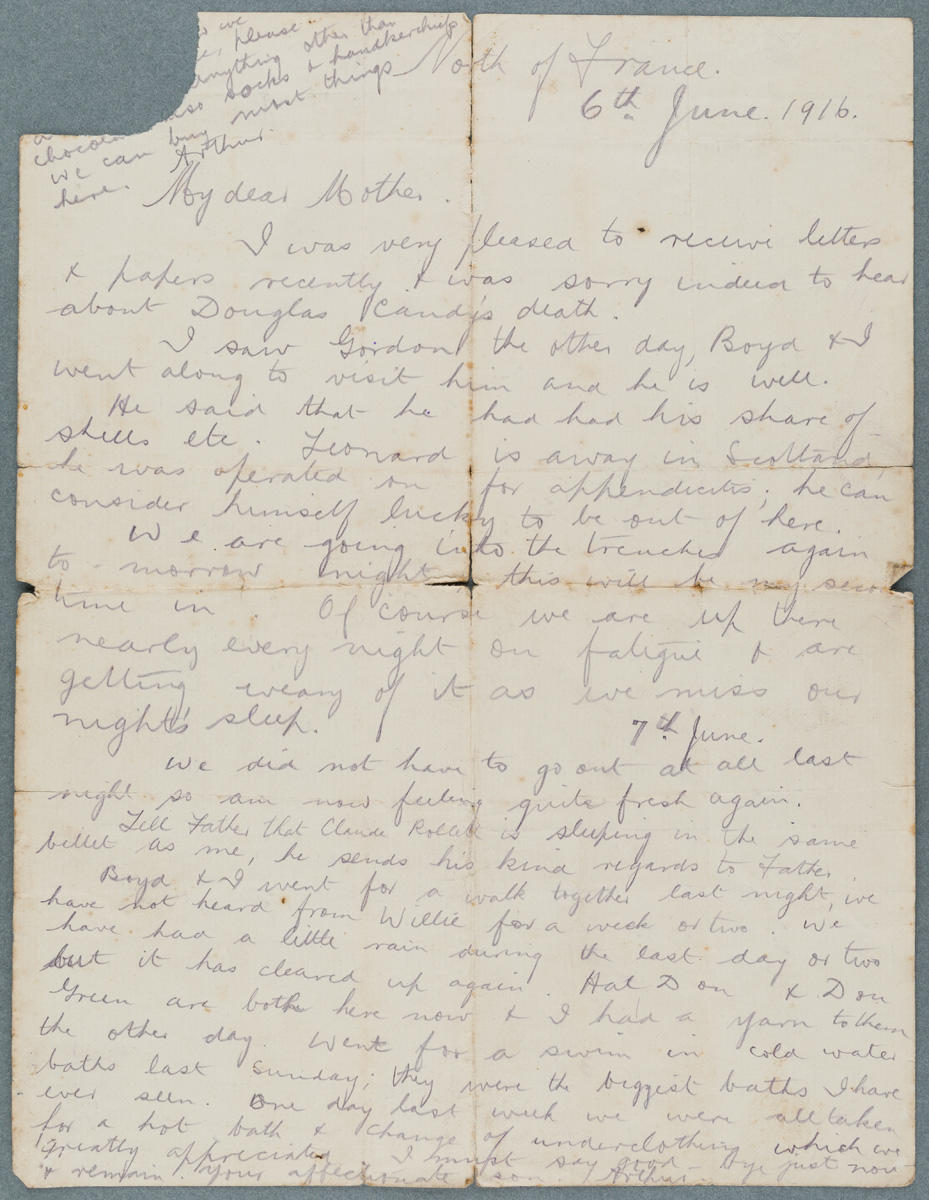 we
please
anything other than
socks & handkerchiefs
chocolate
we can buy most things
here. Arthur.
North of France.
6th June. 1916.
My dear Mother.
I was very pleased to receive letters
& papers recently & was sorry indeed to hear
about Douglas Candy's death.
I saw Gordon the other day, Boyd & I
went along to visit him and he is well.
He said that he had had his share of
shells etc. Leonard is away in Scotland,
he was operated on for appendicitis; he can
consider himself lucky to be out of here.
We are going into the trenches again
to morrow night, this will be my
time in. Of course we are up there
nearly every night on fatigue & are
getting weary of it as we miss our
night's sleep.
7th June.
We did not have to go out at all last
night so am now feeling quite fresh again.
Tell Father that Claude is sleeping in the same
billet as me, he sends his kind regards to Father.
Boyd & I went for a walk together last night, we
have not heard from Willie for a week or two. We
have had a little rain during the last day or two
but it has cleared up again. Hal Don & Don
Green are both here now & I had a yarn to them
the other day. Went for a swim in cold water
baths last Sunday; they were the biggest baths I have
ever seen. One day last week we were all taken
for a hot bath & change of underclothing which we
greatly appreciated. I must say good-bye just now
& remain your affectionate son. Arthur.